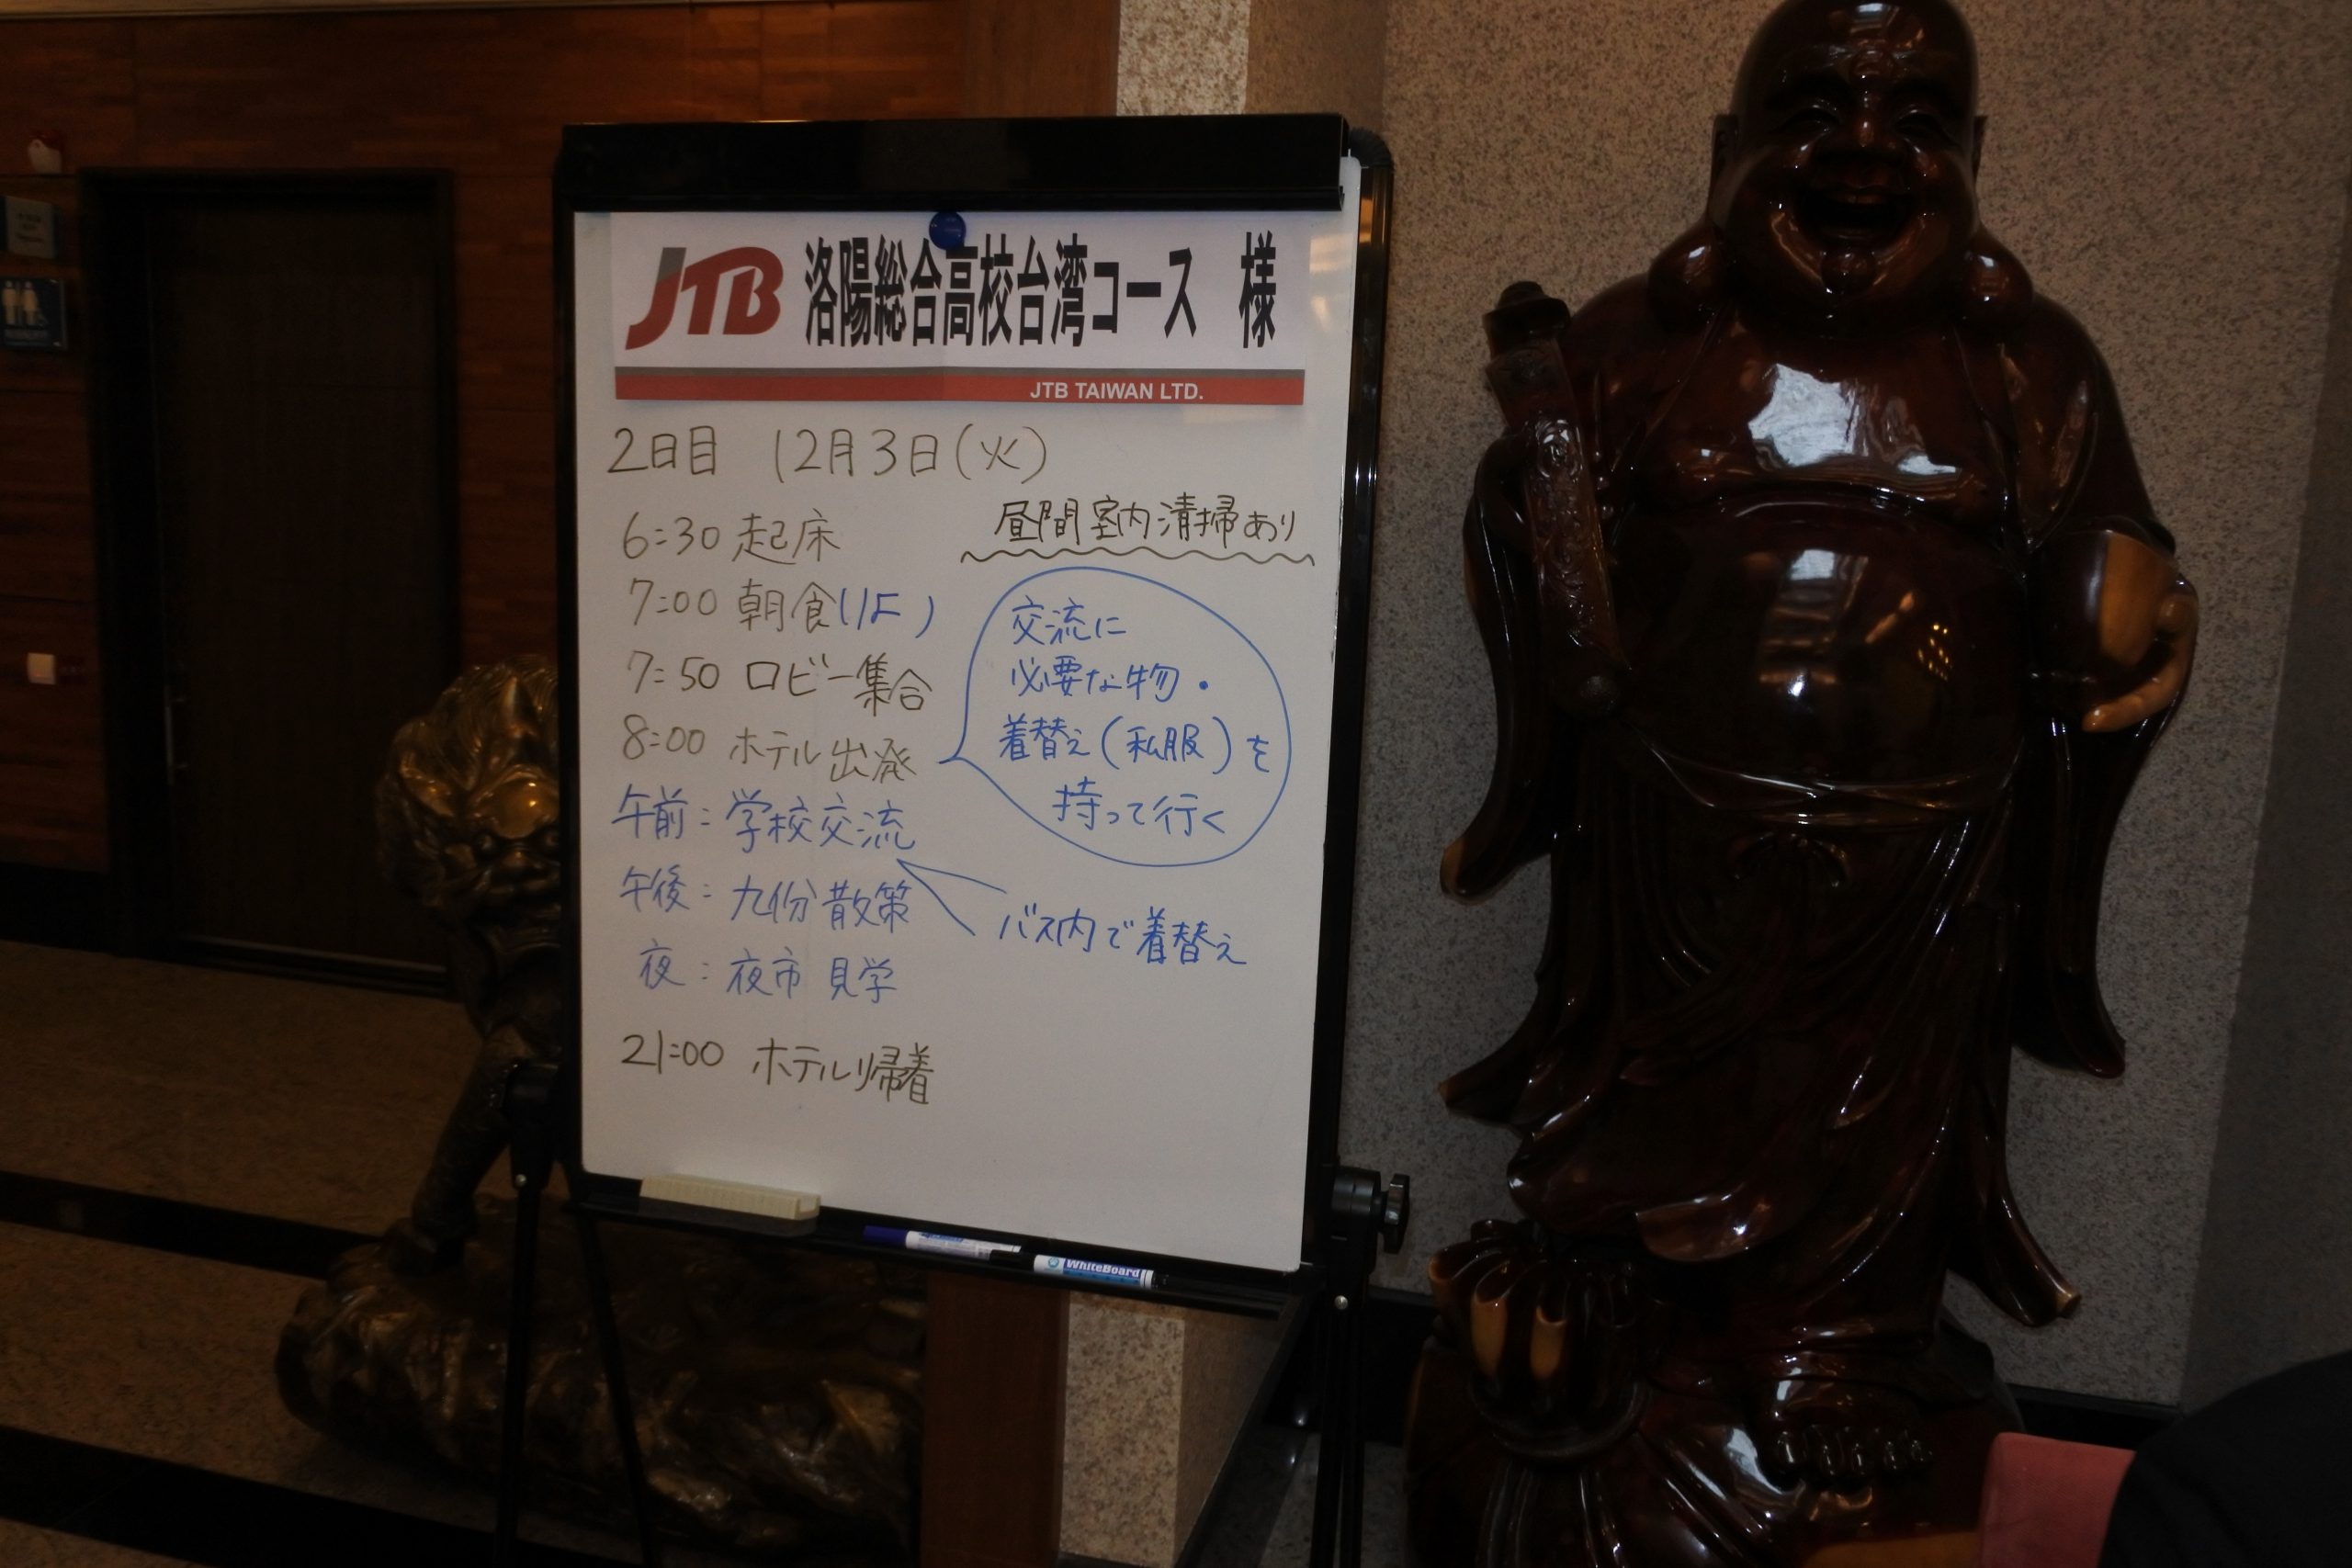 JTB 洛陽総合高校台湾コース 様
JTB TAIWAN LTD.
2日目 12月3日(火)
昼間室内清掃あり
6:30 起床
7:00 朝食(1F)
7:50 ロビー集合
8:00 ホテル出発
交流に
必要な物・
着替え(私服)を
持って行く
午前:学校交流
バス内で着替え
午後:九份散策
夜:夜市見学
21:00 ホテル帰着
WhiteBoard